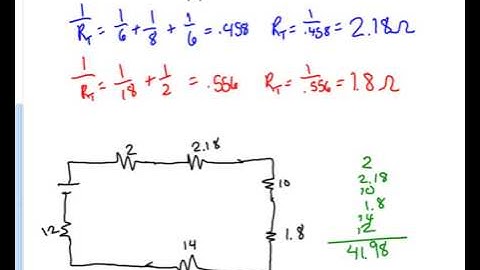 1/R_T = 1/6 + 1/8 + 1/6 = .458 R_T = 1/.458 = 2.18 Ω
1/R_T = 1/18 + 1/2 = .556 R_T = 1/.556 = 1.8 Ω
2 2.18
10
1.8
14
12
2
2.18
10
1.8
14
12
41.98